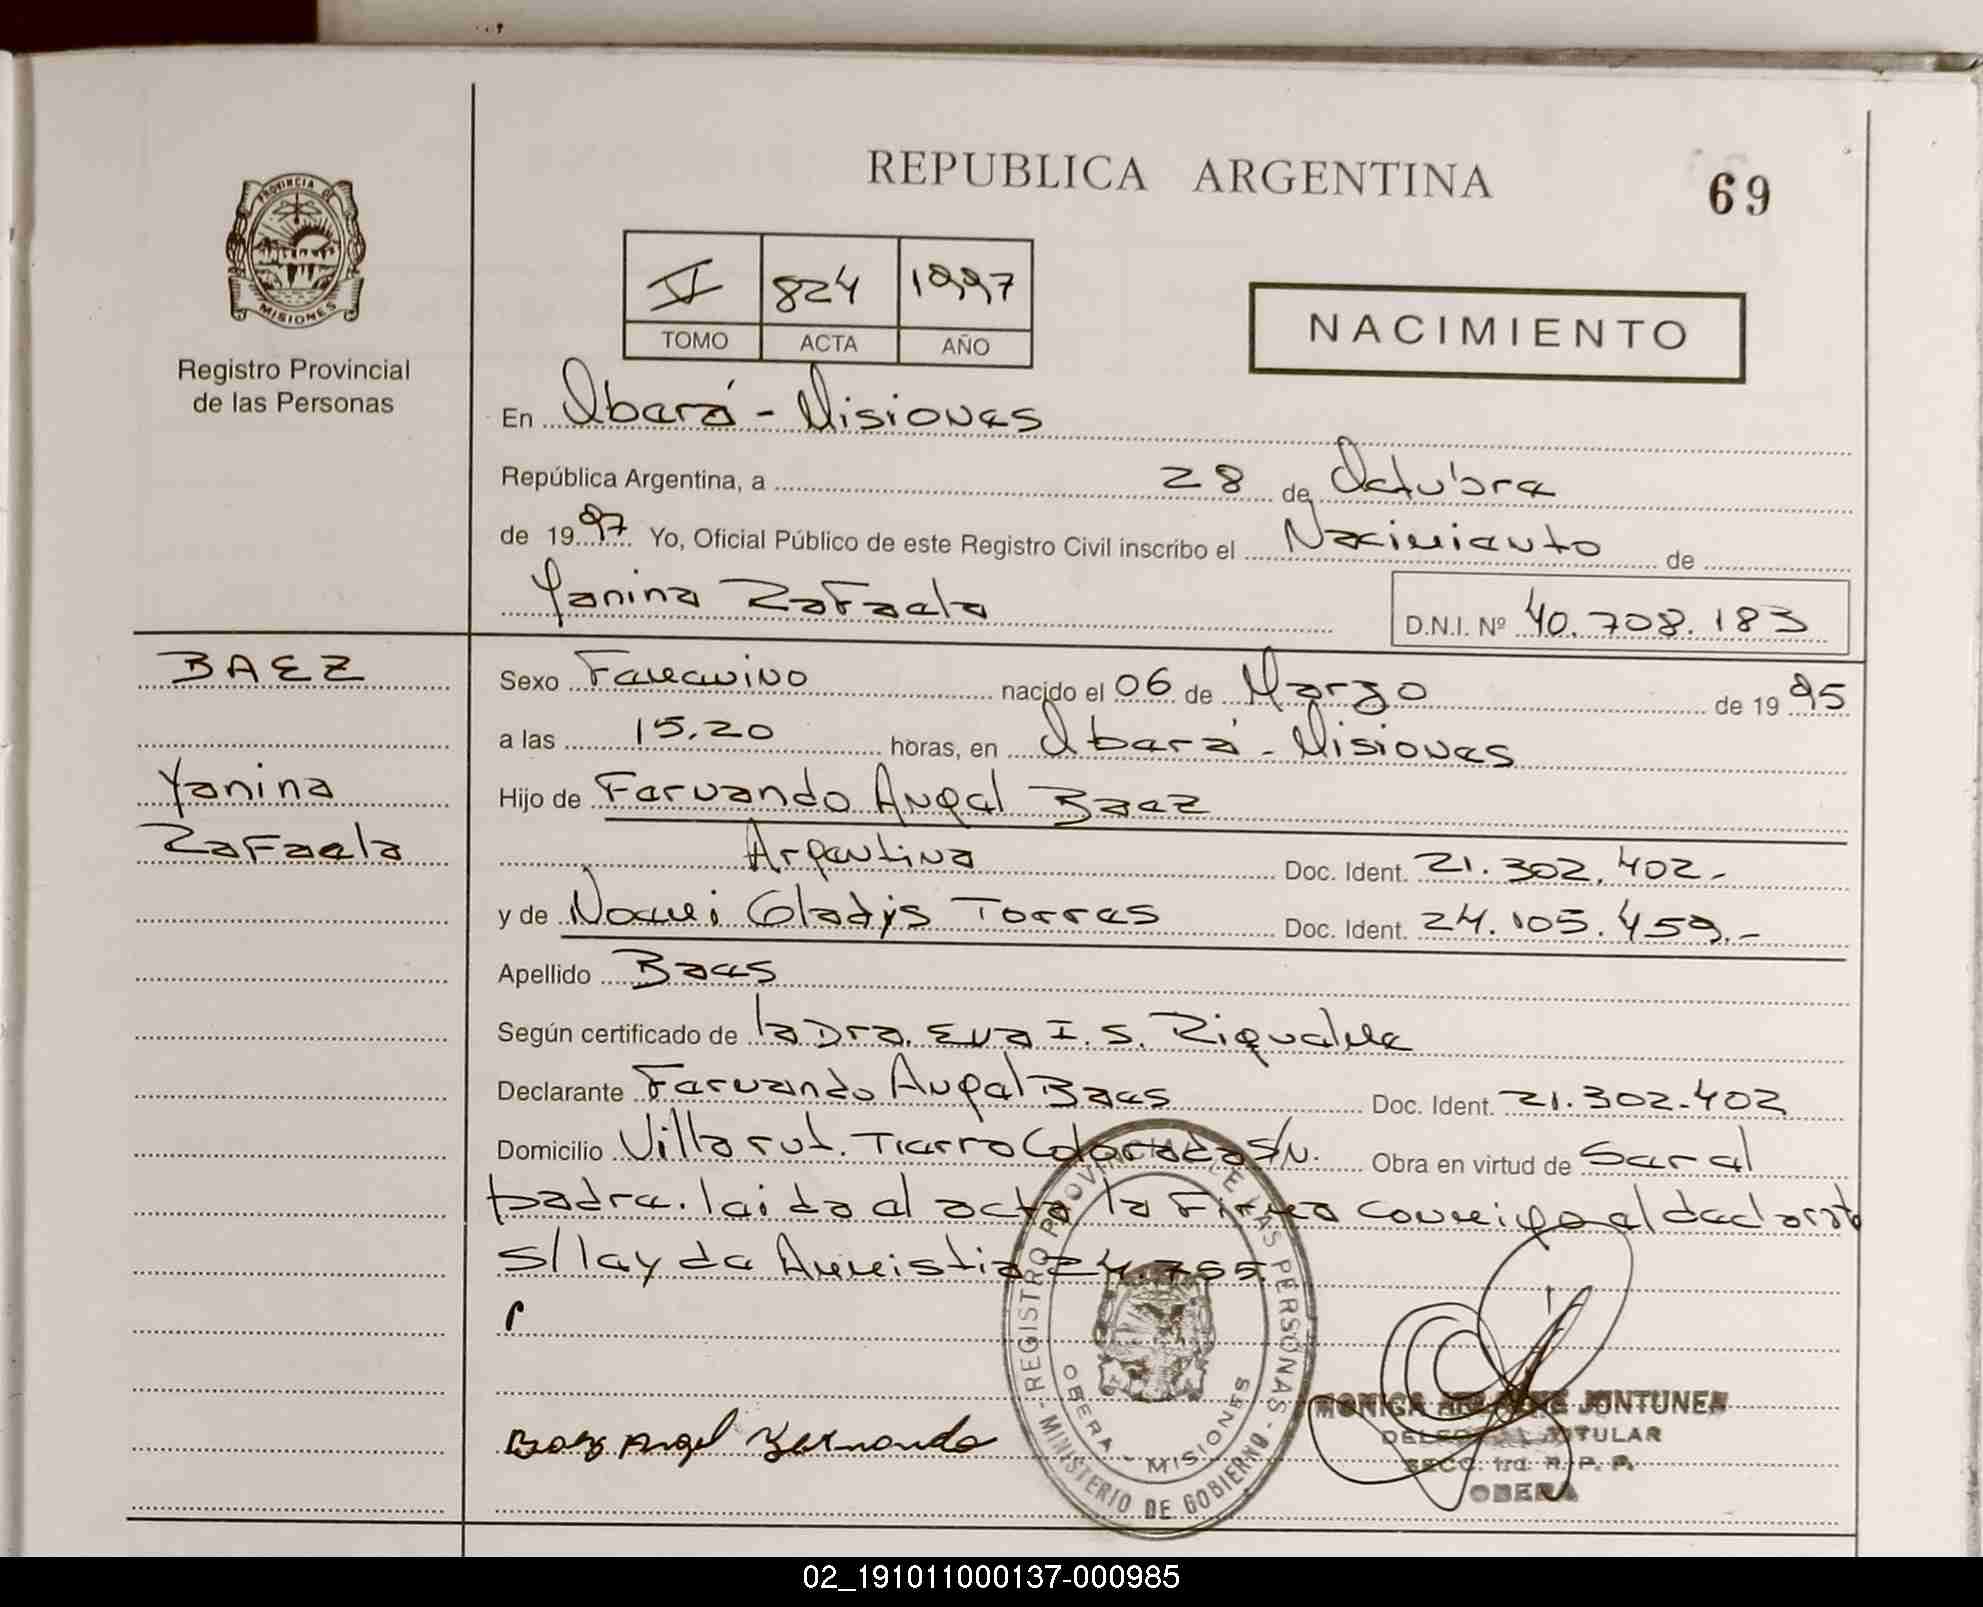 REPUBLICA ARGENTINA
69
PROVINCIA DE
MISIONES
Registro Provincial
de las Personas
V 824 1997
TOMO ACTA AÑO
NACIMIENTO
En Oberá - Misiones
República Argentina, a 28 de Octubre
de 1997 Yo, Oficial Público de este Registro Civil inscribo el Nacimiento de
Yanina Rafaela
D.N.I. Nº 40.708.183
BAEZ
Yanina
Rafaela
Sexo Femenino nacido el 06 de Marzo de 1995
a las 15.20 horas, en Oberá - Misiones
Hijo de Fernando Angel Baez
Argentina Doc. Ident. 21.302.402.-
y de Noemi Gladys Torres Doc. Ident. 24.105.459.-
Apellido Baes
Según certificado de la Dra. Eva I. S. Riquelme
Declarante Fernando Angel Baes Doc. Ident. 21.302.402
Domicilio Villa rut. Tierra Colorada S/N. Obra en virtud de Ser el
padre. leida el acta la Firma conmigo el declarante
s/ ley de Amnistia 24.755.
Baez Angel Fernando
REGISTRO PROVINCIAL DE LAS PERSONAS - MINISTERIO DE GOBIERNO -
OBERA - MISIONES
MONICA JUNTUNEN
DELEGADA TITULAR
SECC. 1ra. R. P. P.
OBERA
02_191011000137-000985